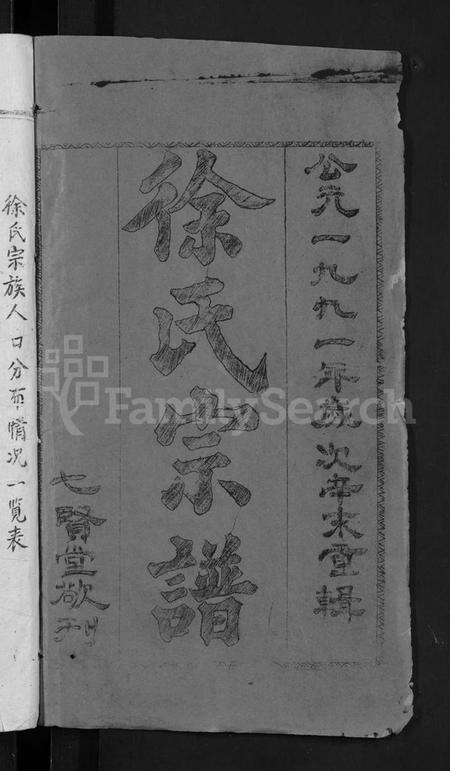 公元一九九一年歲次辛未重輯
徐氏宗譜
七賢堂敬刊
徐氏宗族人口分布情况一覧表
FamilySearch